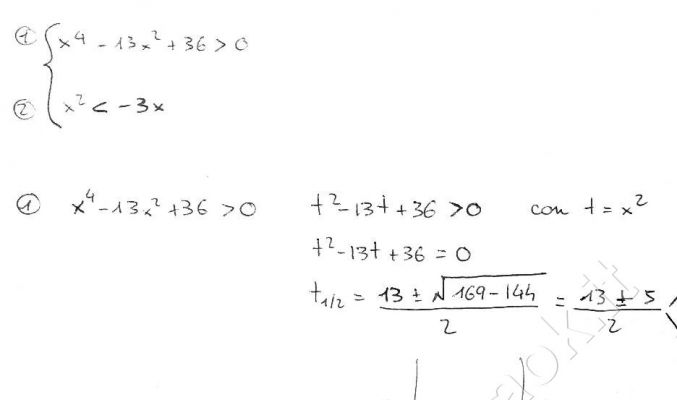 ① { x⁴ - 13x² + 36 > 0
② { x² < -3x
① x⁴ - 13x² + 36 > 0    t² - 13t + 36 > 0    con t = x²
t² - 13t + 36 = 0
t₁/₂ = (13 ± √(169 - 144))/2 = (13 ± 5)/2